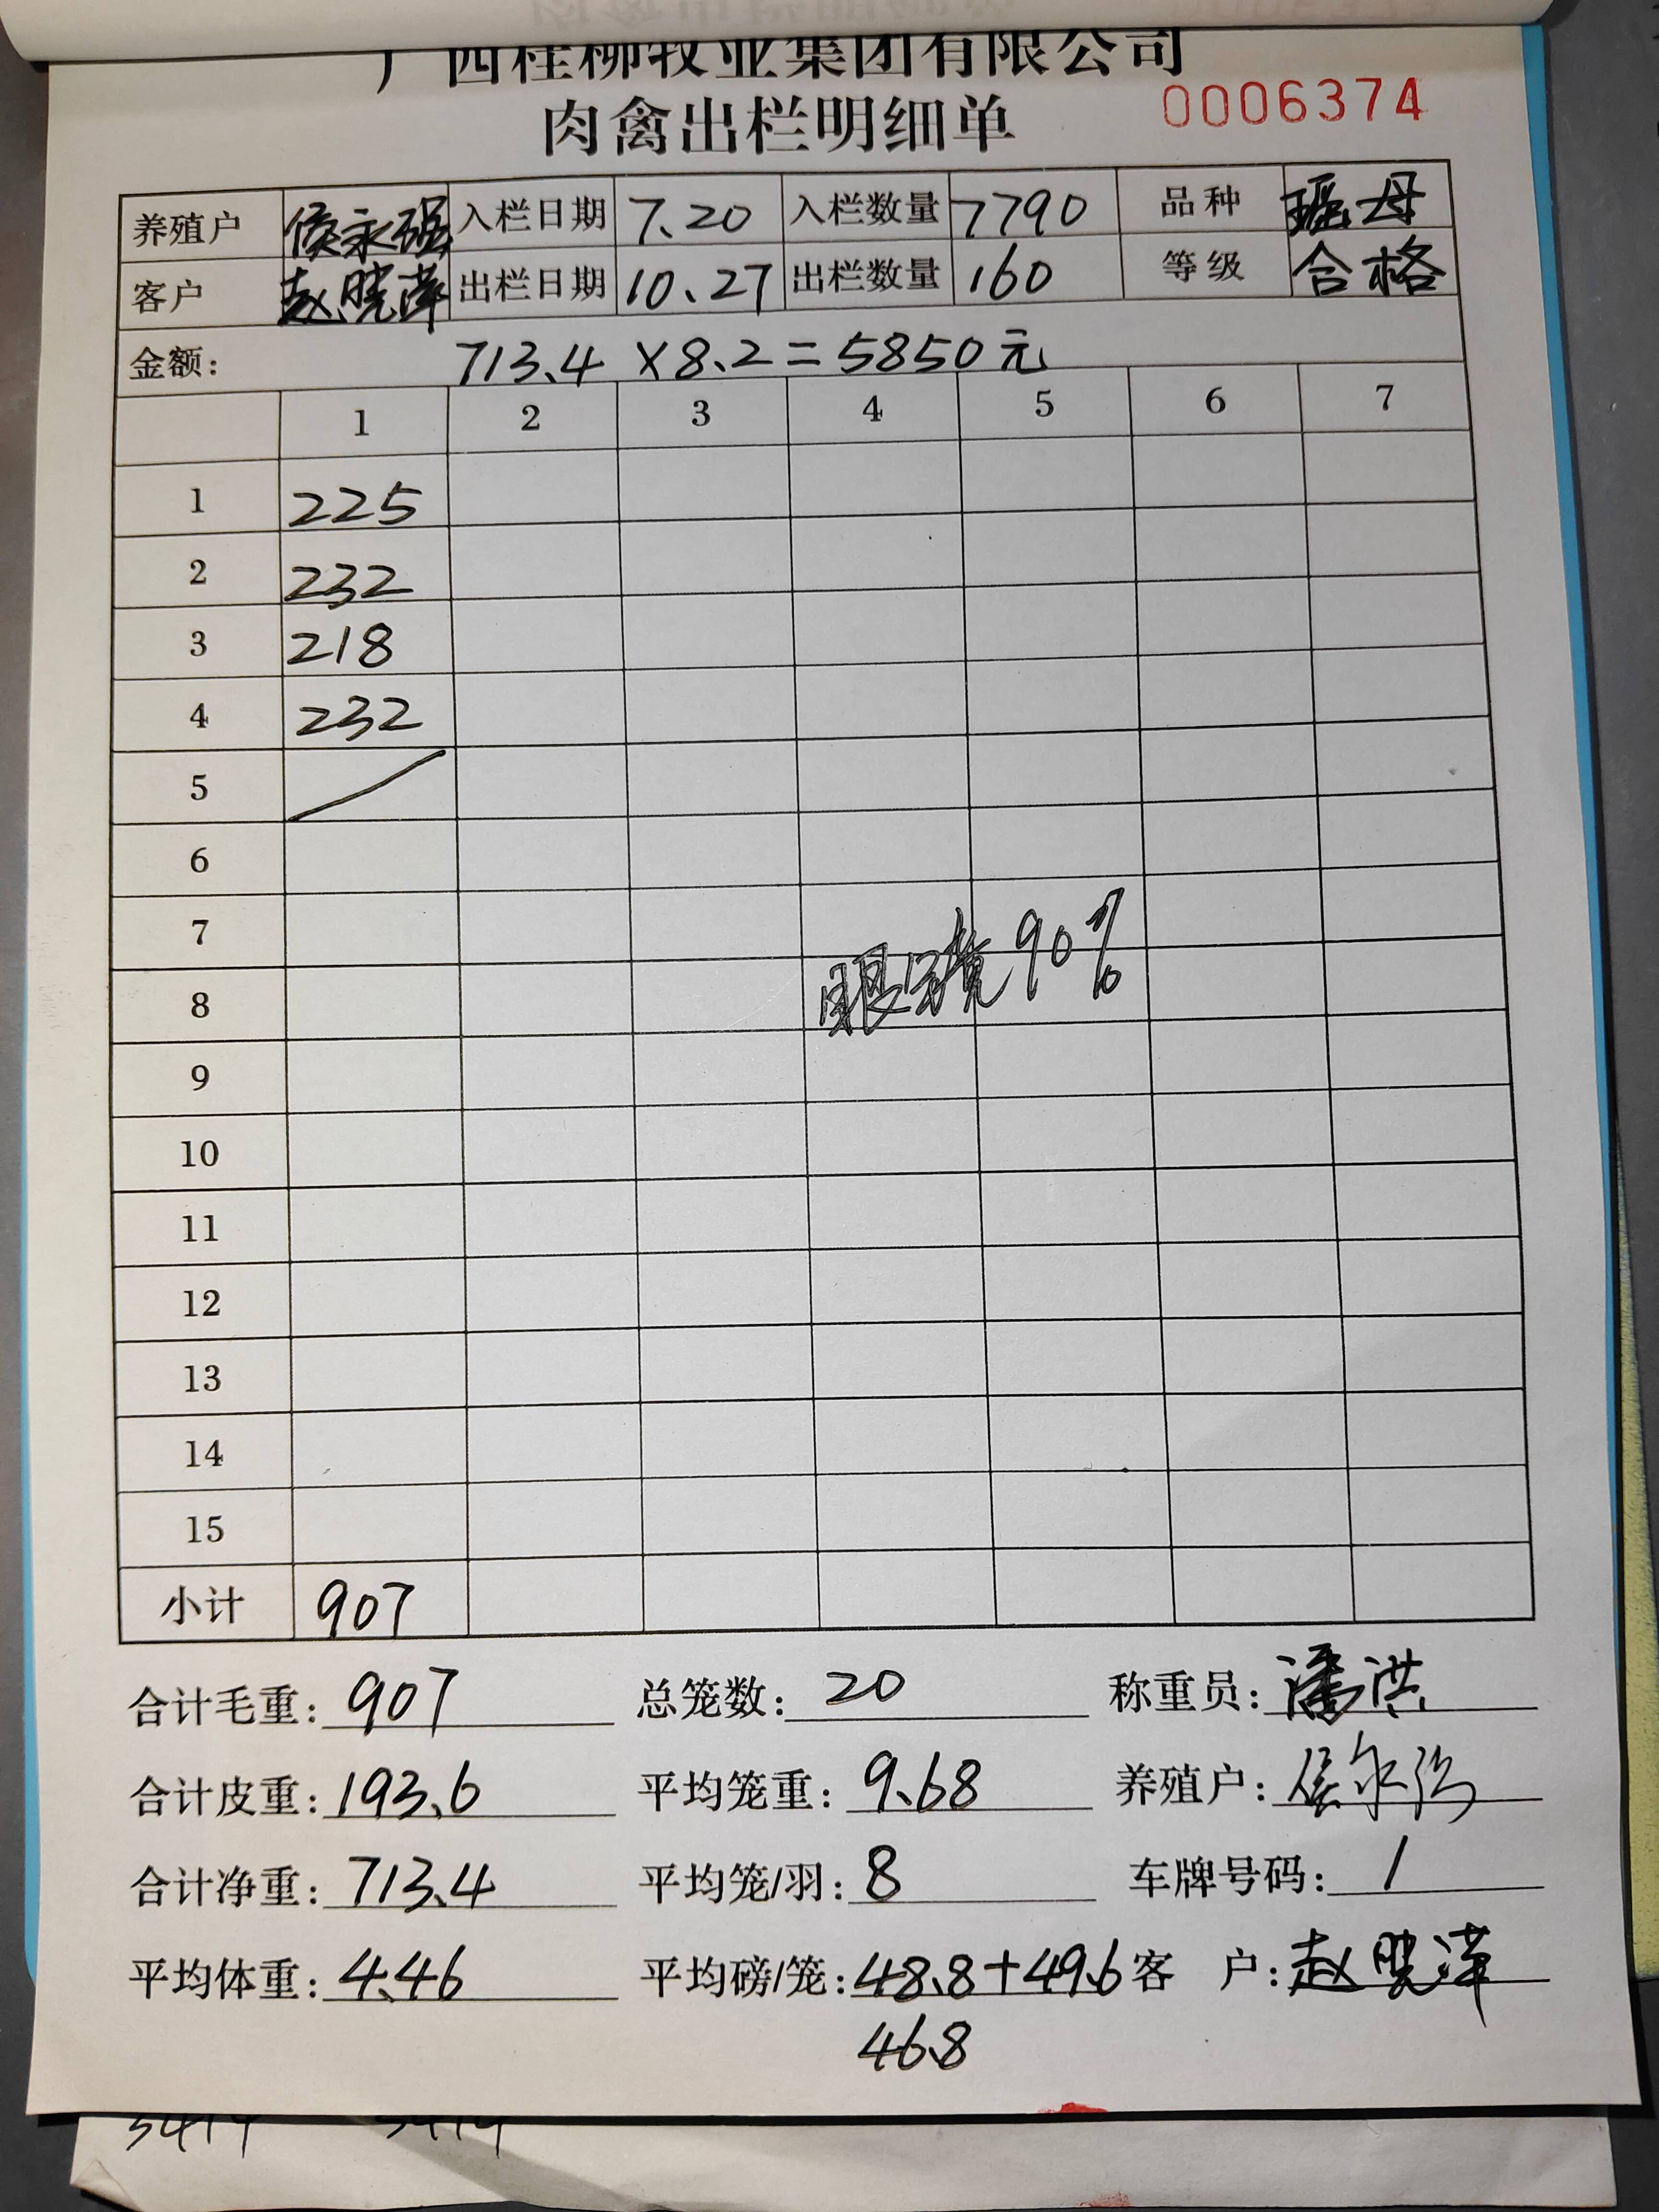 广西桂柳牧业集团有限公司
肉禽出栏明细单 0006374
养殖户 侯永强 入栏日期 7.20 入栏数量 7790 品种 瑶母
客户 赵晓萍 出栏日期 10.27 出栏数量 160 等级 合格
金额: 713.4×8.2=5850元
1 2 3 4 5 6 7
1 225
2 232
3 218
4 232
5
6
7
眼镜90%
8
9
10
11
12
13
14
15
小计 907
合计毛重: 907 总笼数: 20 称重员: 潘洪
合计皮重: 193.6 平均笼重: 9.68 养殖户: 侯永强
合计净重: 713.4 平均笼/羽: 8 车牌号码: /
平均体重: 4.46 平均磅/笼: 48.8+49.6 客 户: 赵晓萍
46.8